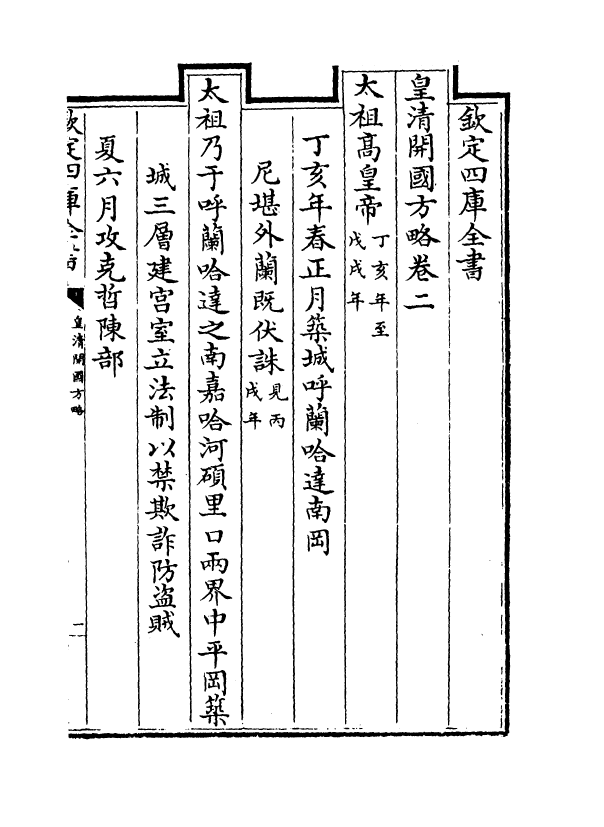 欽定四庫全書
皇清開國方略卷二
太祖高皇帝丁亥年至
戊戌年
丁亥年春正月築城呼蘭哈達南岡
尼堪外蘭既伏誅見丙
戌年
太祖乃于呼蘭哈達之南嘉哈河碩里口兩界中平岡築
城三層建宮室立法制以禁欺詐防盜賊
夏六月攻克哲陳部
欽定四庫全書
皇清開國方略